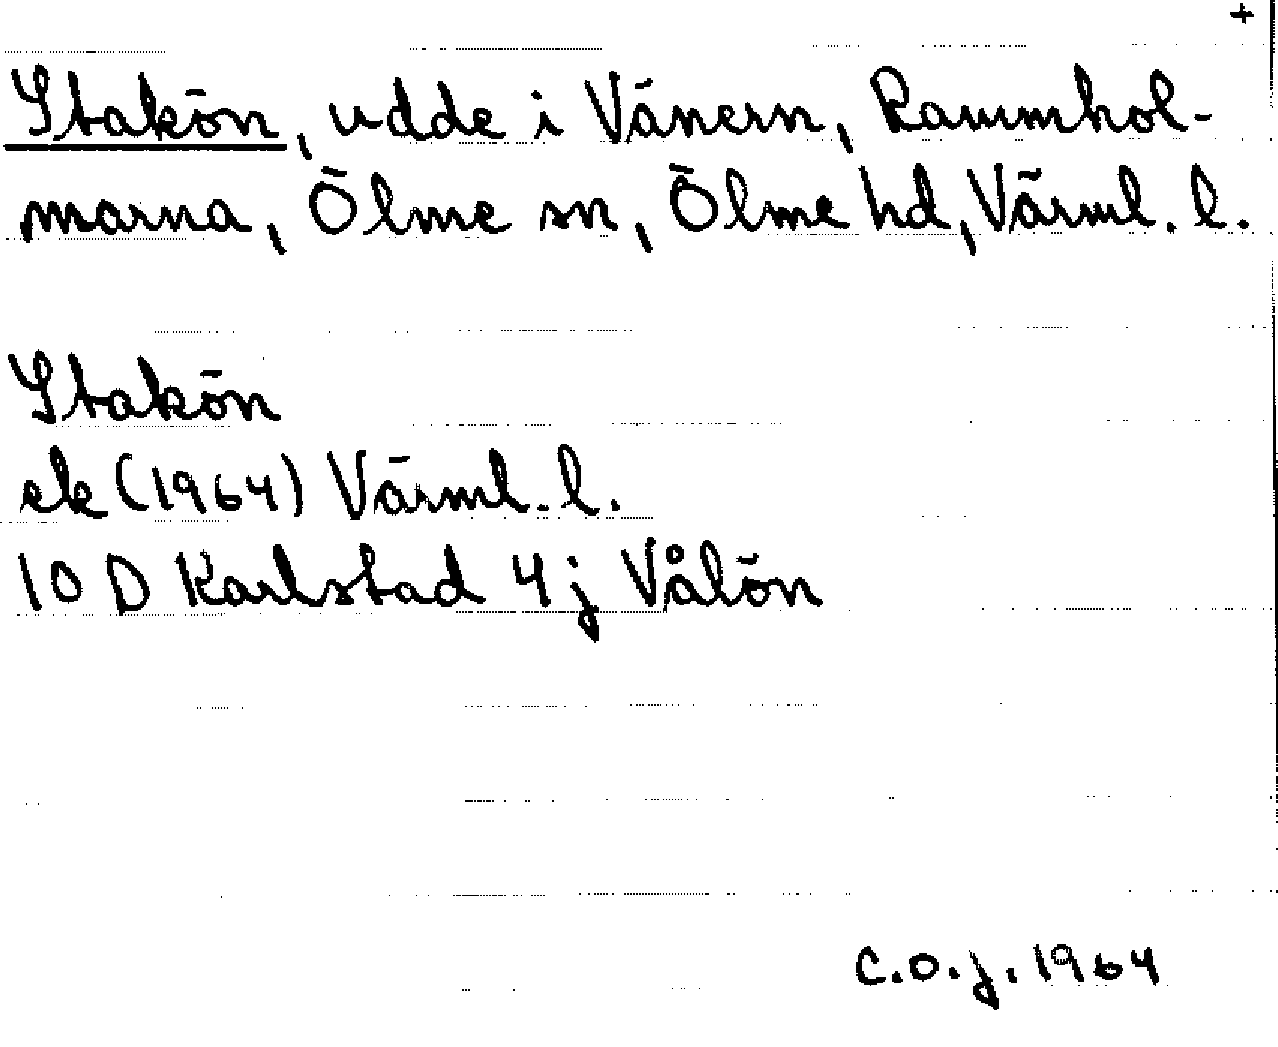 +
Stakön, udde i Vänern, Rammhol-
marna, Ölme sn, Ölme hd, Värml. l.
Stakön
ek (1964) Värml. l.
10 D Karlstad 4j Vålön
C.O.J. 1964